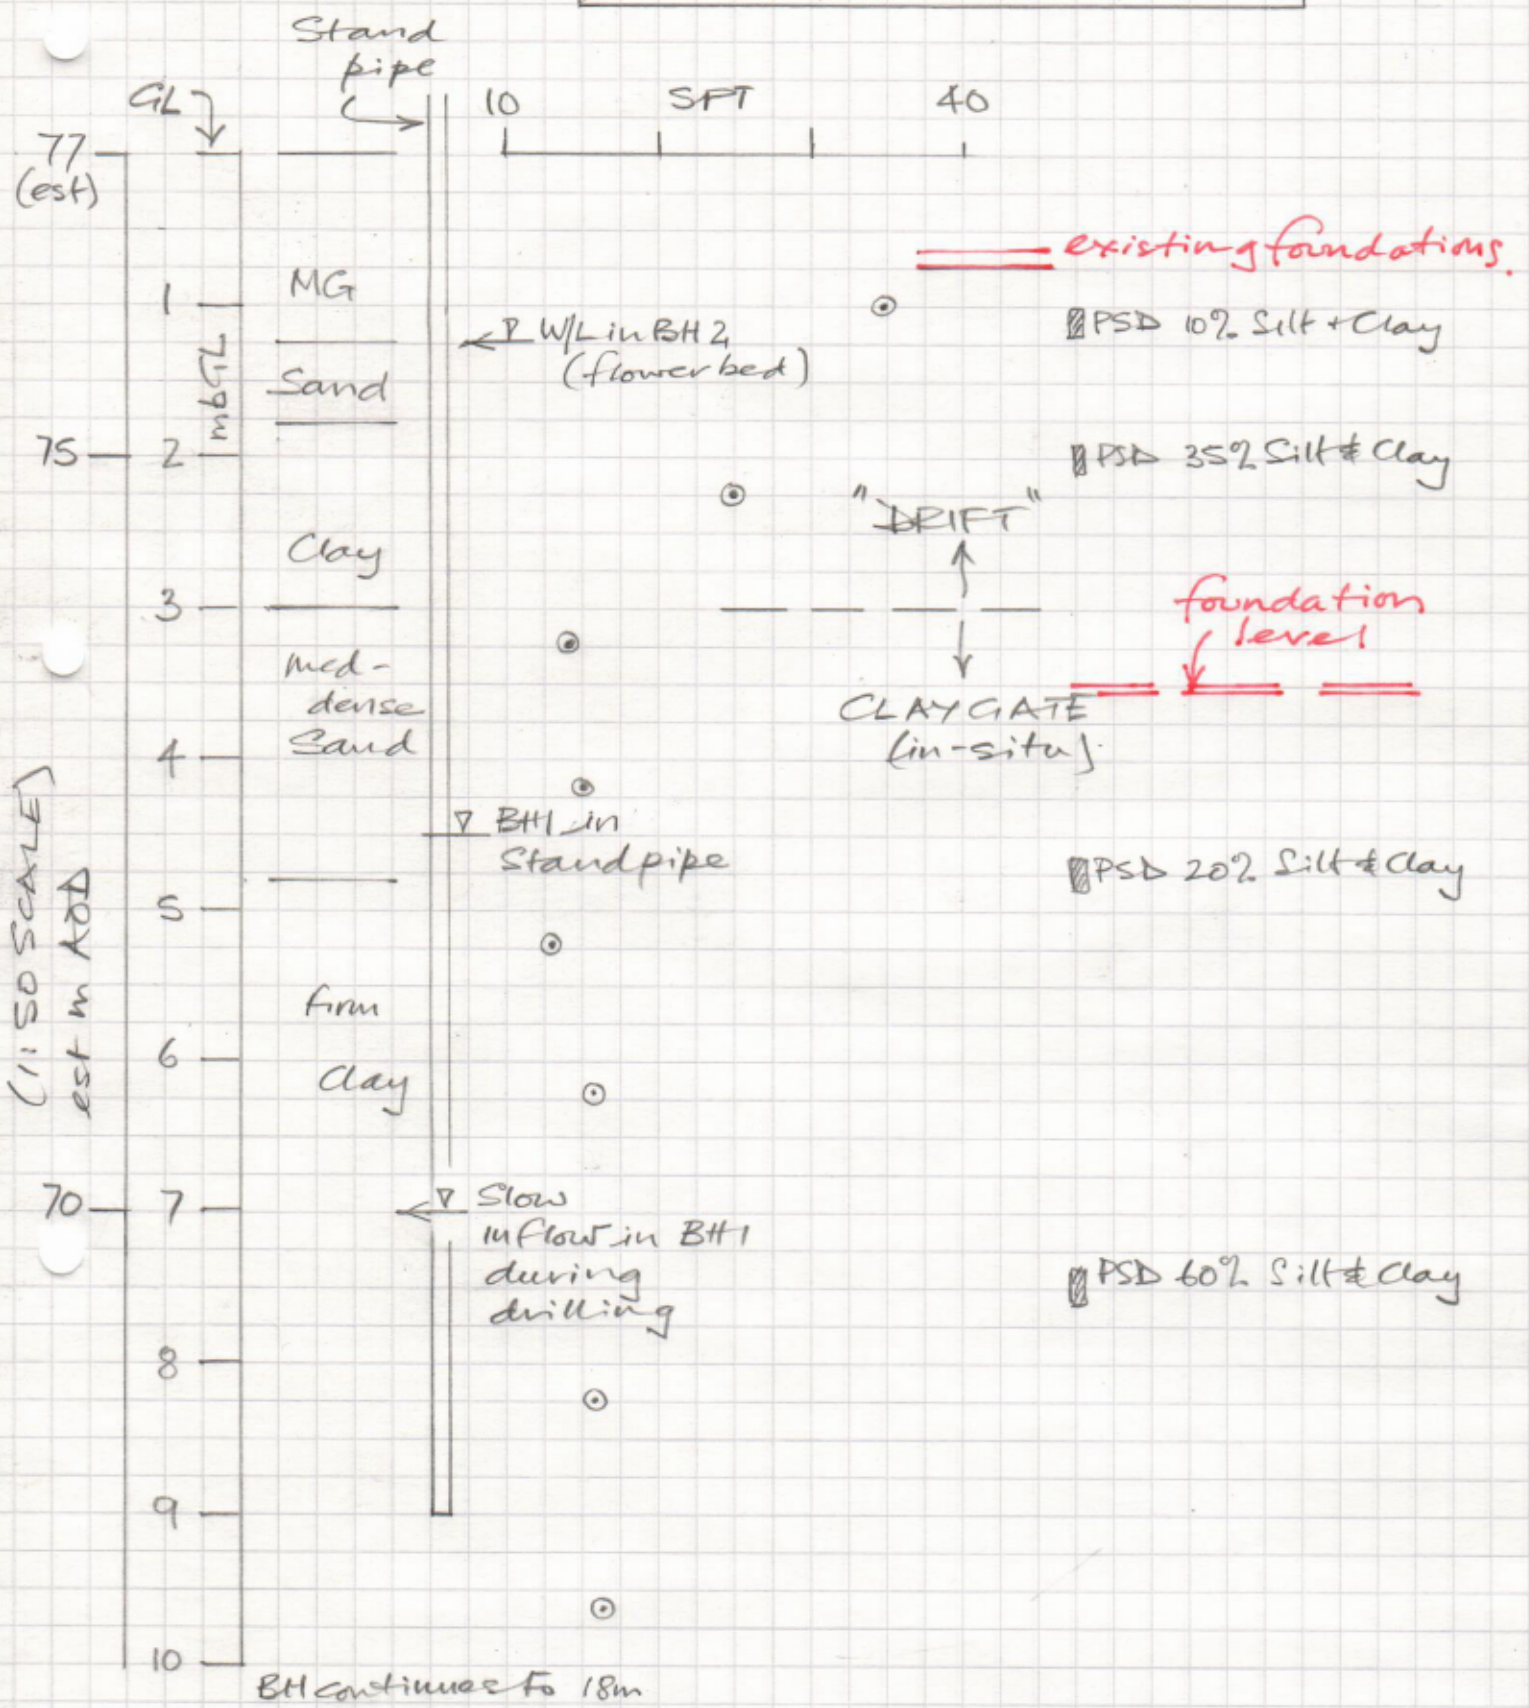 Stand
pipe
GL
10 SPT 40
77
(est)
existing foundations.
MG
1
PSD 10% Silt + Clay
W/L in BH2
(flower bed)
mbGL
Sand
75
2
PSD 35% Silt & Clay
"DRIFT"
Clay
3
foundation
level
med-
dense
Sand
CLAYGATE
(in-situ)
4
BH1 in
Standpipe
PSD 20% Silt & Clay
5
(1:50 SCALE)
est m AOD
firm
6
Clay
70
7
Slow
inflow in BH1
during
drilling
PSD 60% Silt & Clay
8
9
10
BH continues to 18m